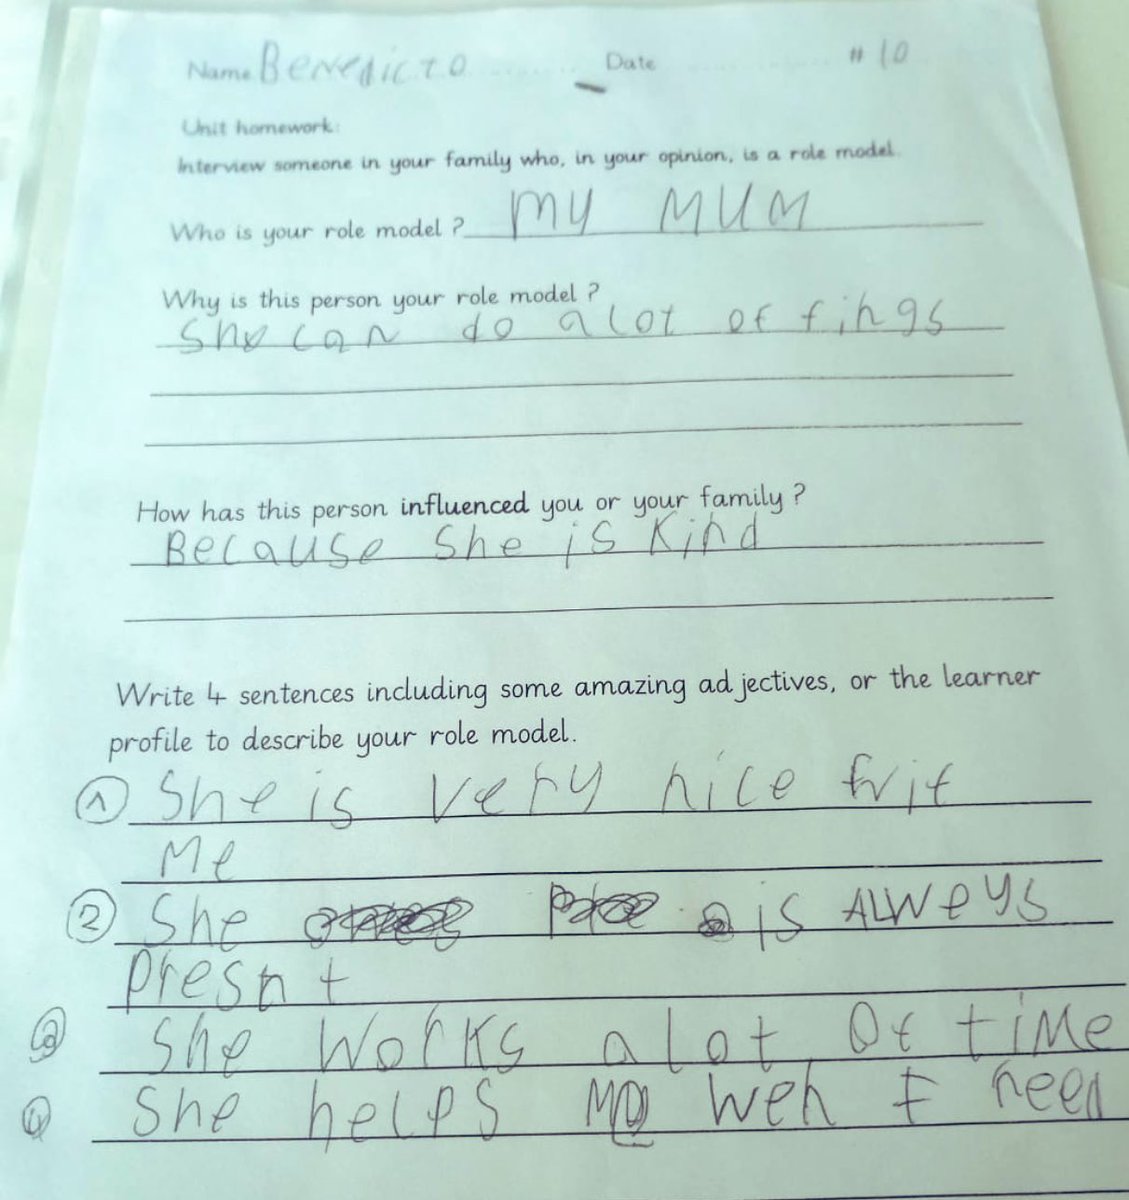 Name Benedicto Date # 10
Unit homework:
Interview someone in your family who, in your opinion, is a role model.
Who is your role model ? MY MUM
Why is this person your role model ?
She can do a lot of fings
How has this person influenced you or your family ?
Because She is Kind
Write 4 sentences including some amazing adjectives, or the learner
profile to describe your role model.
1 She is very nice frit
Me
2 She is ALWeys
Presnt
3 She Works a lot Of time
4 She helps Me weh I need